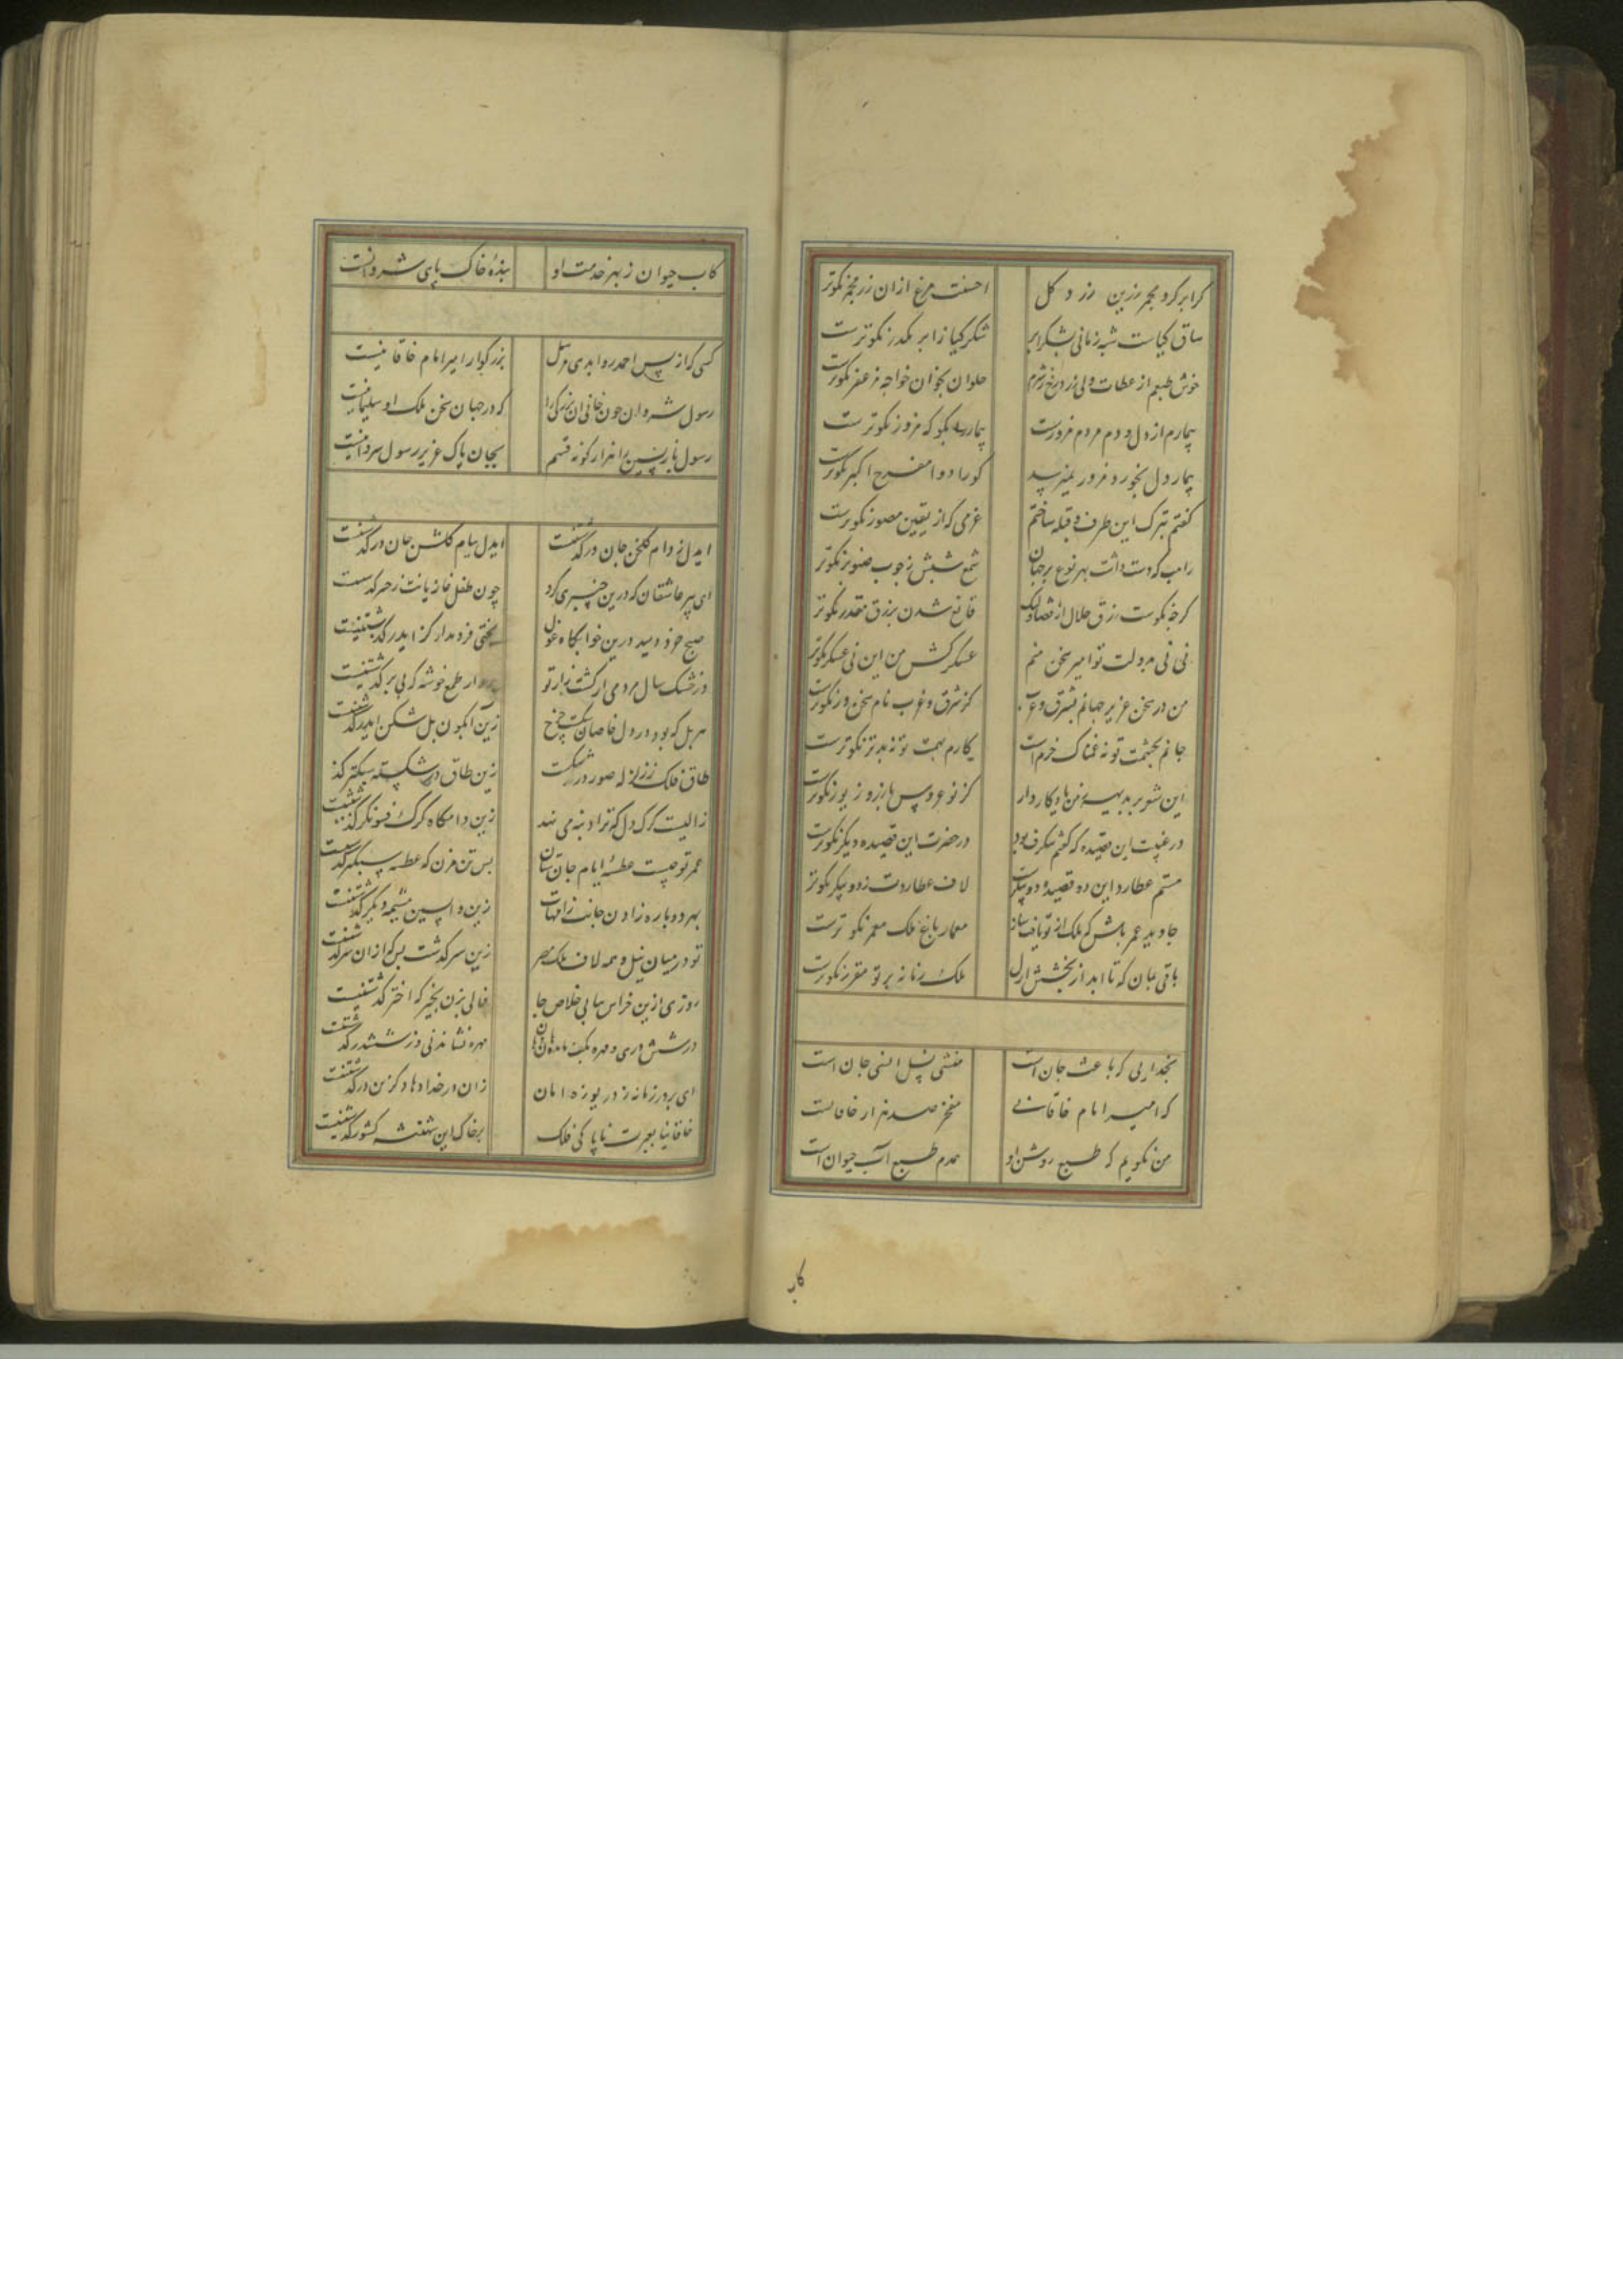 کرابر کرد مجمر زرین زر د کل احسنت مرغ ازان زر مجمر نکوتر
ساق کیاست شبه زمانی بشکر ابر شکر کیا ز ابر مکدر نکوترست
خوش طبعم از عطات ولی زرد رخ ز شرم حلوان بخوان خواجه مزعفر نکوترست
بیمارم از دل و دم مردم مزورست بیمار به بکو که مزور نکوترست
بیمار دل بخورد مزور نمیزید کورا دوا مفرح اکبر نکوترست
کفتم بترک این طرف و قبله ساختم عزمی که از یقین مصور نکوترست
راهب که دست داشت بهر نوع بر جهان شمع شبش ز چوب صنوبر نکوتر
کرچه نکوست رزق حلال از قضا ولیک قانع شدن برزق مقدر نکوتر
نی نی بدولت تو امیر سخن منم عسکر کش من این نی عسکر نکوتر
من در سخن عزیز جهانم بشرق و غرب کز شرق و غرب نام سخن ور نکوترست
جانم بحشمت تو نه غمناک خرم است کارم بهمت تو نه بدتر نکوترست
این شعر بر بدیهه ز من یادکار دار کز نو عروس با زر و زیور نکوترست
در غیبت این قصیده که کفتم شکرف بود در حضرت این قصیده دیکر نکوترست
هستم عطارد این دو قصیده دو پیکرست لاف عطاردت ز دو پیکر نکوتر
جاوید عمر باش که ملک از تو یافت ساز معمار باغ ملک معمر نکوترست
باقی بمان که تا ابد از بخشش ازل ملک زمانه بر تو مقرر نکوترست
بخدایی که باعث جان است منشی نسل انسی جان است
که امیر امام خاقانی مفخر صد هزار خاقانست
من نکویم که طبع روشن او همدم طبع آب حیوان است
کاب
کاب حیوان ز بهر خدمت او بندهٔ خاک پای شروانست
کسی که از پس احمد روا بدی مرسل بزرکوار امیر امام خاقانیست
رسول شروان چون خوانی ان بزرکی را که در جهان سخن ملک او سلیمانیست
رسول بازپسین را هزار کونه قسم بجان پاک عزیز رسول شروانیست
ایدل ز دام کلخن جان در کذشتنیست ایدل ببام کلشن جان در کذشتنیست
ای پیر عاشقان که درین چنبری کرد چون طفل غازیانت ز چنبر کذشتنیست
صبح خرد دمید درین خوابکاه غول بختی فرو مدار کز ایدر کذشتنیست
در خشک سال مردمی از کشت زار تو بردار طمع خوشه که بی بر کذشتنیست
هر پل که بود در دل خاصان شکست چرخ زین آبکون پل شکن ایدر کذشتنیست
طاق فلک ز زلزله صور در شکست زین طاق در شکسته سبکتر کذ
زالیست کرک دل که ترا دنبه می نهد زین دامکاه کرک فسونکر کذشتنیست
عمر تو چیست عطسهٔ ایام جان ستان بس تن مزن که عطسه سبکتر کذشتنیست
بهر دوباره زادن جانت ز امهات زین واپسین مشیمه دیکر کذشتنیست
تو در میان نیل و همه لاف ملک مصر زین سر کذشت بس که ازان سر کذشتنیست
روزی ازین خراس بیابی خلاص جان فالی بزن بخیر که اختر کذشتنیست
در شش دری و مهره بکف ماندهٔ هان و هان مهره نشاندنی و ز ششدر کذشتنیست
ای بر در زمانه ز دریوزه امان زان در خدا دهاد کزین در کذشتنیست
خاقانیا بعبرت ناپاکی فلک بر خاک این شهنشه کشور کذشتنیست